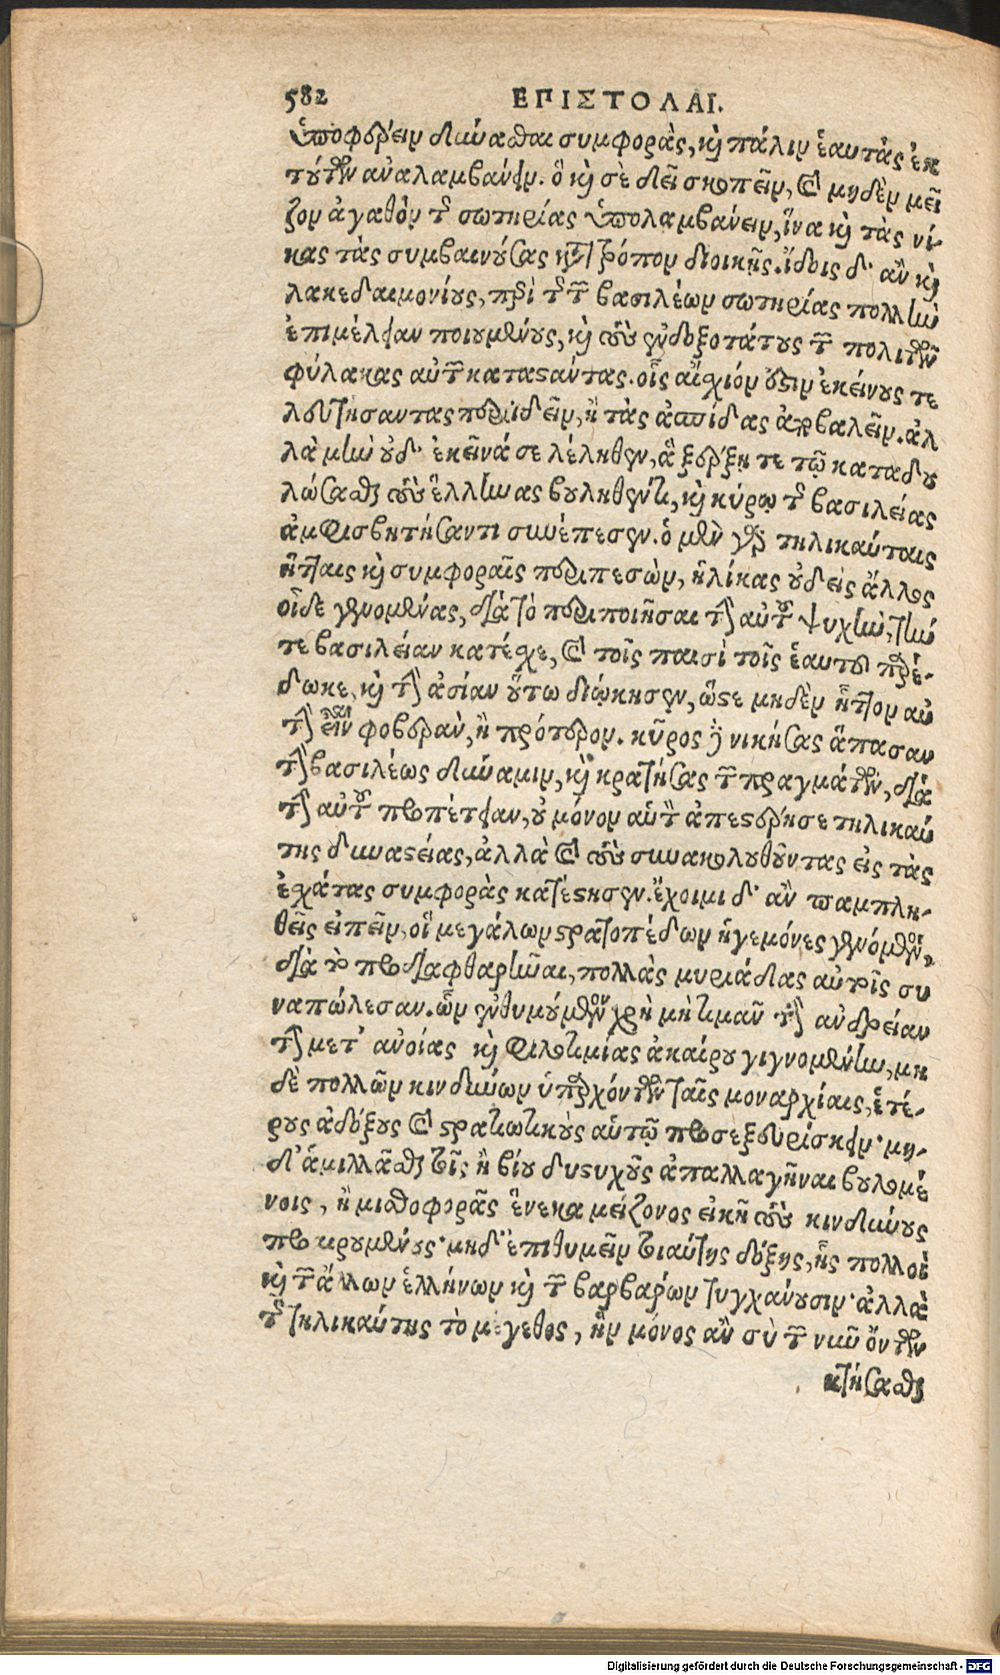 582 ΕΠΙΣΤΟΛΑΙ.
ὑποφέρειν δύνασθαι συμφορὰς, καὶ πάλιν ἑαυτὰς ἐκ
τούτων ἀναλαμβάνειν. ὃ καὶ σὲ δεῖ σκοπεῖν, καὶ μηδὲν μεῖ
ζον ἀγαθὸν τῆς σωτηρίας ὑπολαμβάνειν, ἵνα καὶ τὰς νί-
κας τὰς συμβαινούσας κατὰ τρόπον διοικῇς. ἴδοις δ' ἂν καὶ
λακεδαιμονίους, περὶ τῆς τῶν βασιλέων σωτηρίας πολλὴν
ἐπιμέλειαν ποιουμένους, καὶ τοὺς ἐνδοξοτάτους τῶν πολιτῶν
φύλακας αὐτῶν καταστάντας. οἷς αἴσχιόν ἐστιν ἐκείνους τε
λευτήσαντας περιιδεῖν, ἢ τὰς ἀσπίδας ἀποβαλεῖν. ἀλ
λὰ μὴν οὐδ' ἐκεῖνά σε λέληθεν, ἃ ξέρξῃ τε τῷ καταδου
λώσασθαι τοὺς ἕλληνας βουληθέντι, καὶ κύρῳ τῆς βασιλείας
ἀμφισβητήσαντι συνέπεσεν. ὁ μὲν γὰρ τηλικαύταις
ἥτταις καὶ συμφοραῖς περιπεσὼν, ἡλίκας οὐδεὶς ἄλλος
οἶδε γενομένας, διὰ τὸ περιποιῆσαι τὴν αὑτοῦ ψυχὴν, τήν
τε βασιλείαν κατέσχε, καὶ τοῖς παισὶ τοῖς ἑαυτοῦ παρέ-
δωκε, καὶ τὴν ἀσίαν οὕτω διῴκησεν, ὥστε μηδὲν ἧττον αὐ
τὴν εἶναι φοβερὰν, ἢ πρότερον. κῦρος δὲ νικήσας ἅπασαν
τὴν βασιλέως δύναμιν, καὶ κρατήσας τῶν πραγμάτων, διὰ
τὴν αὑτοῦ προπέτειαν, οὐ μόνον αὑτὸν ἀπεστέρησε τηλικαύ
της δυναστείας, ἀλλὰ καὶ τοὺς συνακολουθοῦντας εἰς τὰς
ἐσχάτας συμφορὰς κατέστησεν. ἔχοιμι δ' ἂν παμπλη-
θεῖς εἰπεῖν, οἳ μεγάλων στρατοπέδων ἡγεμόνες γενόμενοι,
διὰ τὸ προδιαφθαρῆναι, πολλὰς μυριάδας αὑτοῖς συ
ναπώλεσαν. ὧν ἐνθυμούμενον χρὴ μὴ τιμᾶν τὴν ἀνδρείαν
τὴν μετ' ἀνοίας καὶ φιλοτιμίας ἀκαίρου γιγνομένην, μη
δὲ πολλῶν κινδύνων ὑπαρχόντων ταῖς μοναρχίαις, ἑτέ-
ρους ἀδόξους καὶ στρατιωτικοὺς αὑτῷ προσεξευρίσκειν· μη-
δ' ἁμιλλᾶσθαι τοῖς ἢ βίου δυστυχοῦς ἀπαλλαγῆναι βουλομέ
νοις, ἢ μισθοφορᾶς ἕνεκα μείζονος εἰκῆ τοὺς κινδύνους
προαιρουμένους· μηδ' ἐπιθυμεῖν τοιαύτης δόξης, ἧς πολλοὶ
καὶ τῶν ἄλλων ἑλλήνων καὶ τῶν βαρβάρων τυγχάνουσιν· ἀλλὰ
τῆς τηλικαύτης τὸ μέγεθος, ἣν μόνος ἂν σὺ τῶν νῦν ὄντων
κτήσασθαι
Digitalisierung gefördert durch die Deutsche Forschungsgemeinschaft - DFG